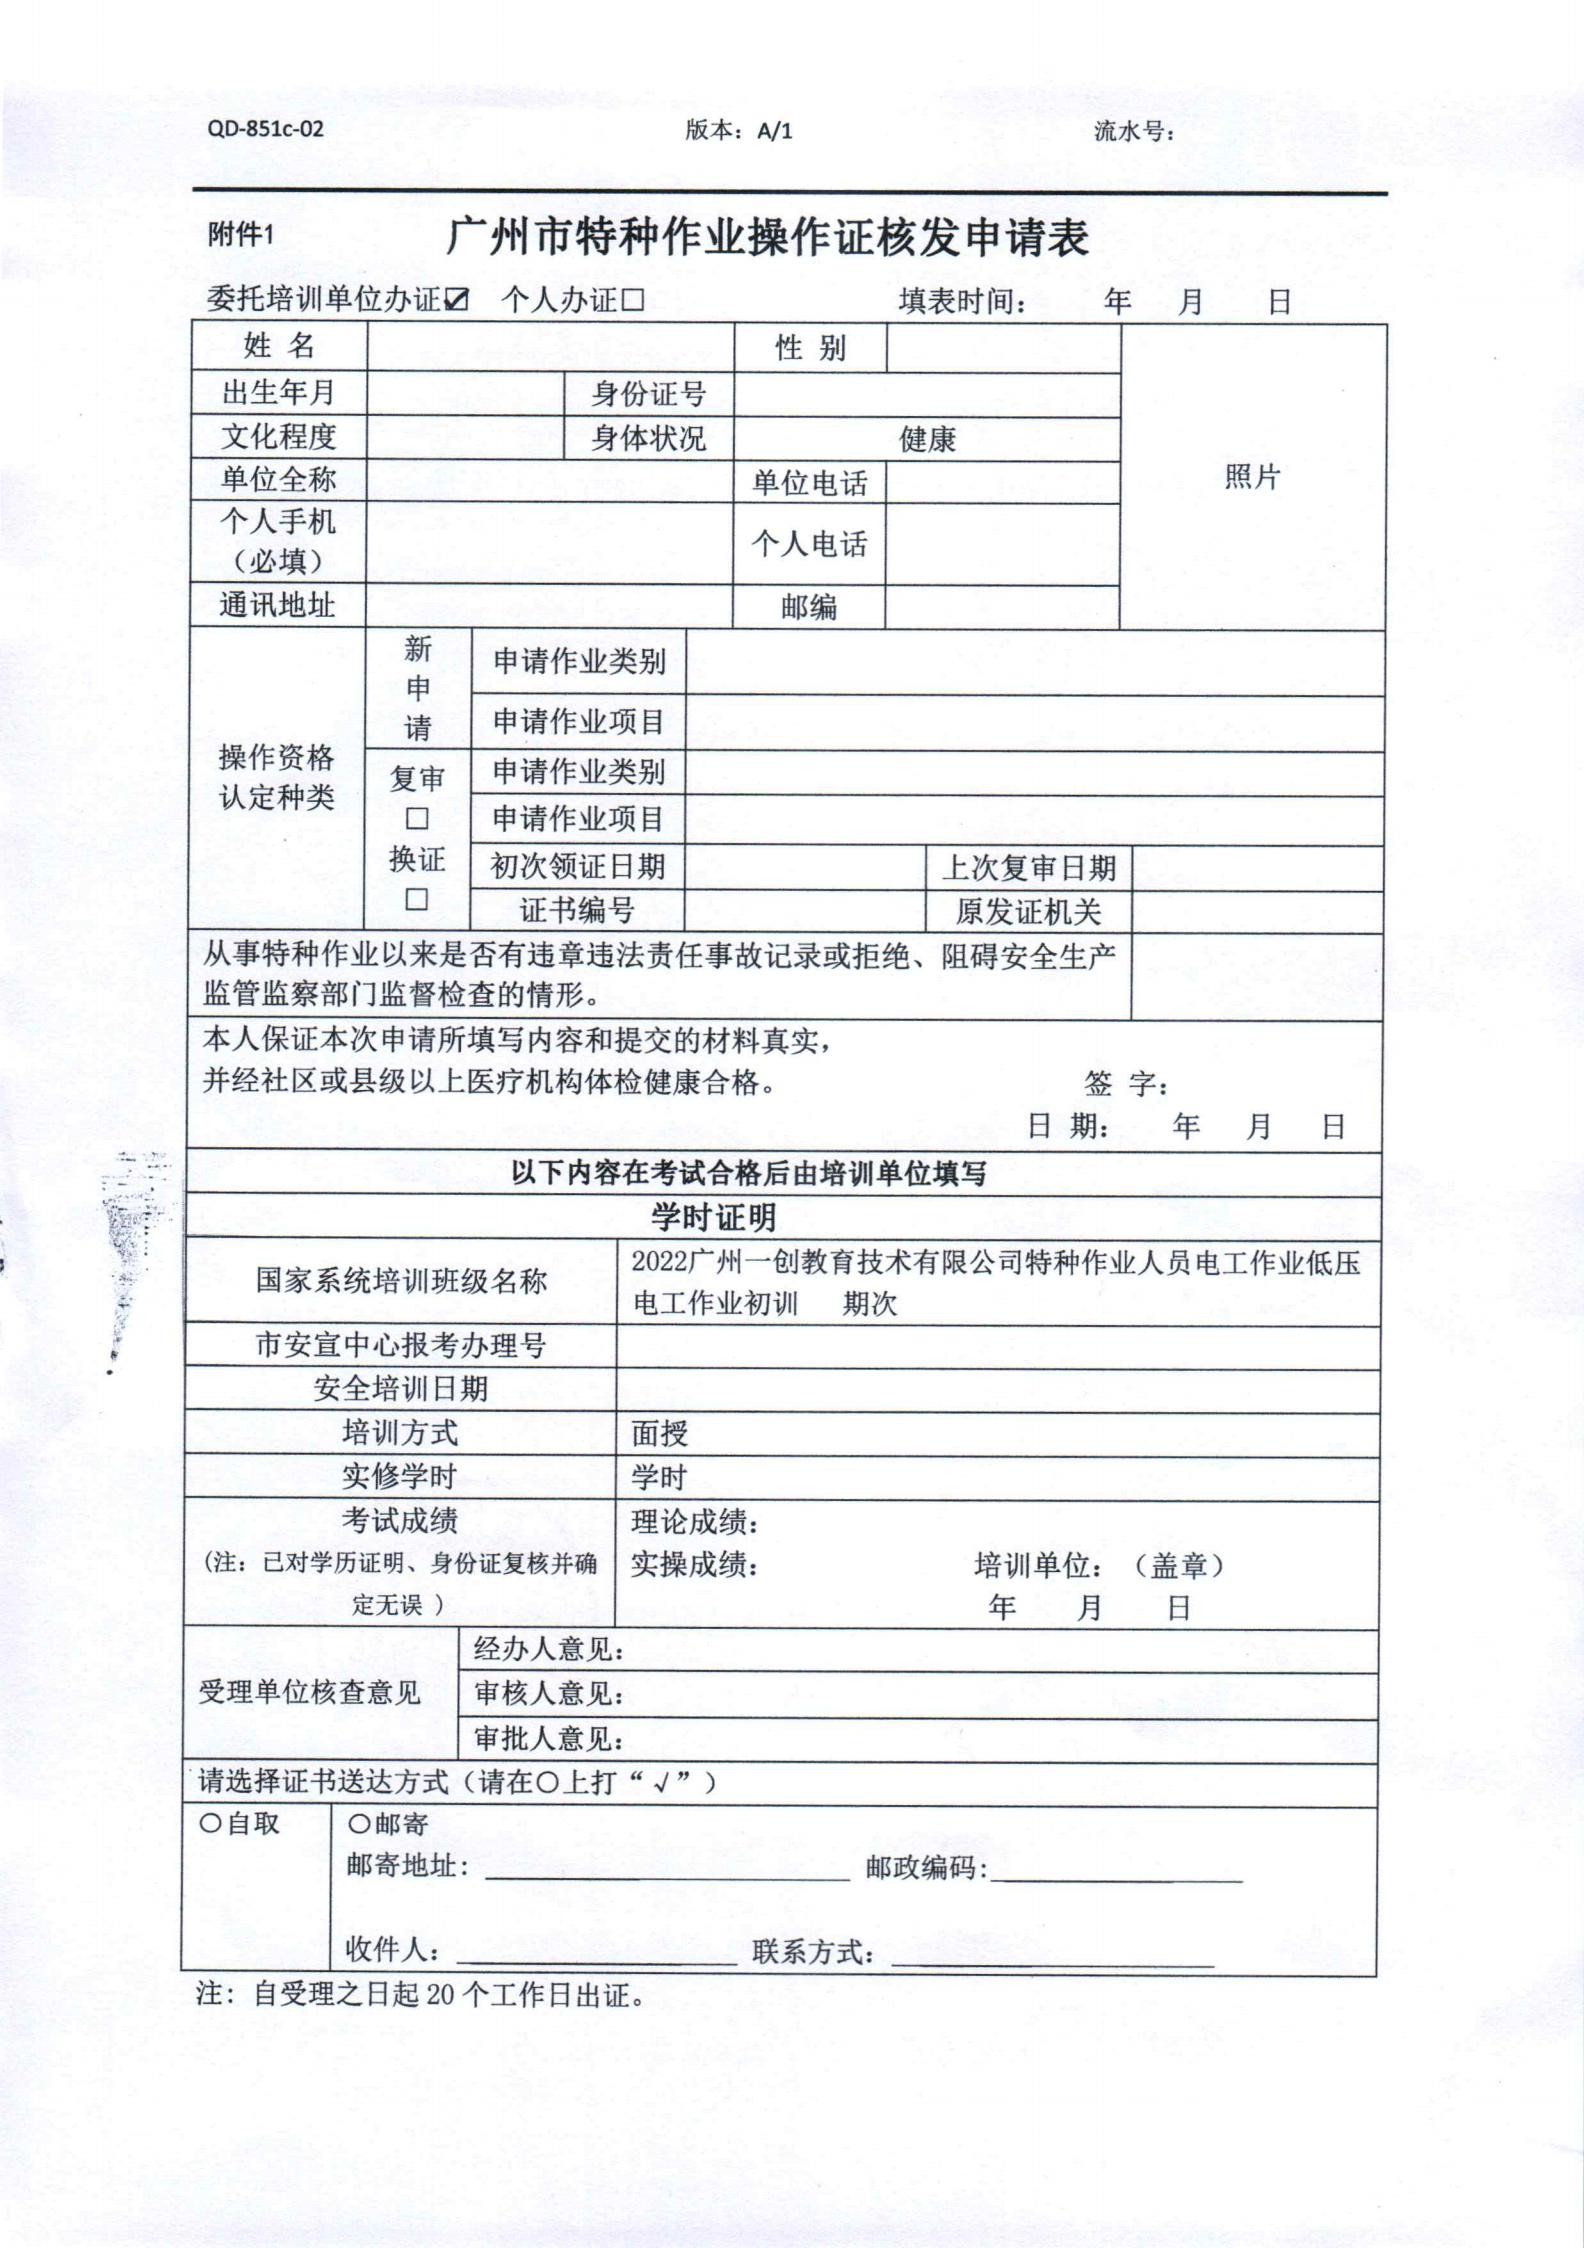 QD-851c-02 版本：A/1 流水号：
附件1 广州市特种作业操作证核发申请表
委托培训单位办证☑ 个人办证□ 填表时间： 年 月 日
姓 名 性 别
出生年月 身份证号
文化程度 身体状况 健康
照片
单位全称 单位电话
个人手机
（必填） 个人电话
通讯地址 邮编
操作资格
认定种类
新
申
请
申请作业类别
申请作业项目
复审
□
换证
□
申请作业类别
申请作业项目
初次领证日期 上次复审日期
证书编号 原发证机关
从事特种作业以来是否有违章违法责任事故记录或拒绝、阻碍安全生产
监管监察部门监督检查的情形。
本人保证本次申请所填写内容和提交的材料真实，
并经社区或县级以上医疗机构体检健康合格。 签 字：
日 期： 年 月 日
以下内容在考试合格后由培训单位填写
学时证明
国家系统培训班级名称
2022广州一创教育技术有限公司特种作业人员电工作业低压
电工作业初训 期次
市安宣中心报考办理号
安全培训日期
培训方式 面授
实修学时 学时
考试成绩
(注：已对学历证明、身份证复核并确
定无误 )
理论成绩：
实操成绩： 培训单位：（盖章）
年 月 日
受理单位核查意见
经办人意见：
审核人意见：
审批人意见：
请选择证书送达方式（请在○上打“√”）
○自取 ○邮寄
邮寄地址： 邮政编码：
收件人： 联系方式：
注：自受理之日起 20 个工作日出证。